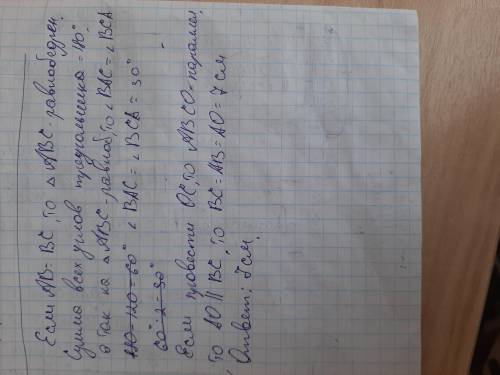 Если AB=BC, то △ABC-равнобедрен.
Сумма всех углов треугольника = 180°
а так ка △ABC-равноб, то ∠BAC=∠BCA
180-120=60° ∠BAC=∠BCA=30°
60:2=30°
Если провести OC, то ABCO-паралел.
то AO || BC, то BC=AB=AO=7см
Ответ: 7см.